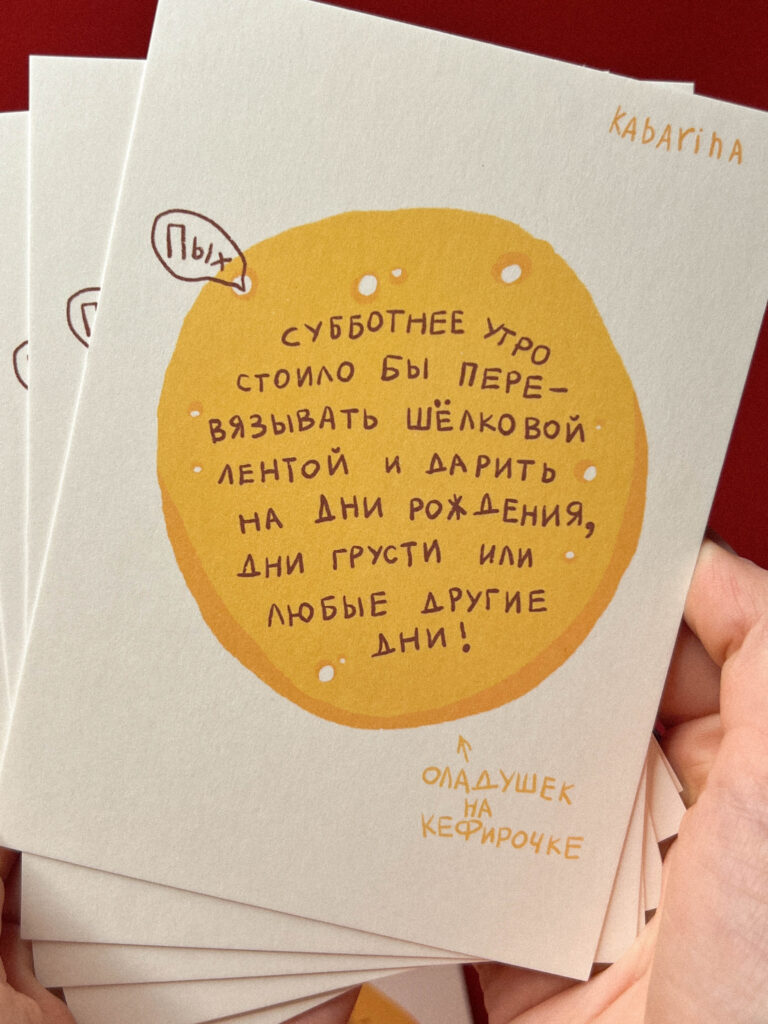 Kabarina
Пых
СУББОТНЕЕ УТРО
СТОИЛО БЫ ПЕРЕ–
ВЯЗЫВАТЬ ШЁЛКОВОЙ
ЛЕНТОЙ И ДАРИТЬ
НА ДНИ РОЖДЕНИЯ,
ДНИ ГРУСТИ ИЛИ
ЛЮБЫЕ ДРУГИЕ
ДНИ!
ОЛАДУШЕК
НА
КЕФИРОЧКЕ